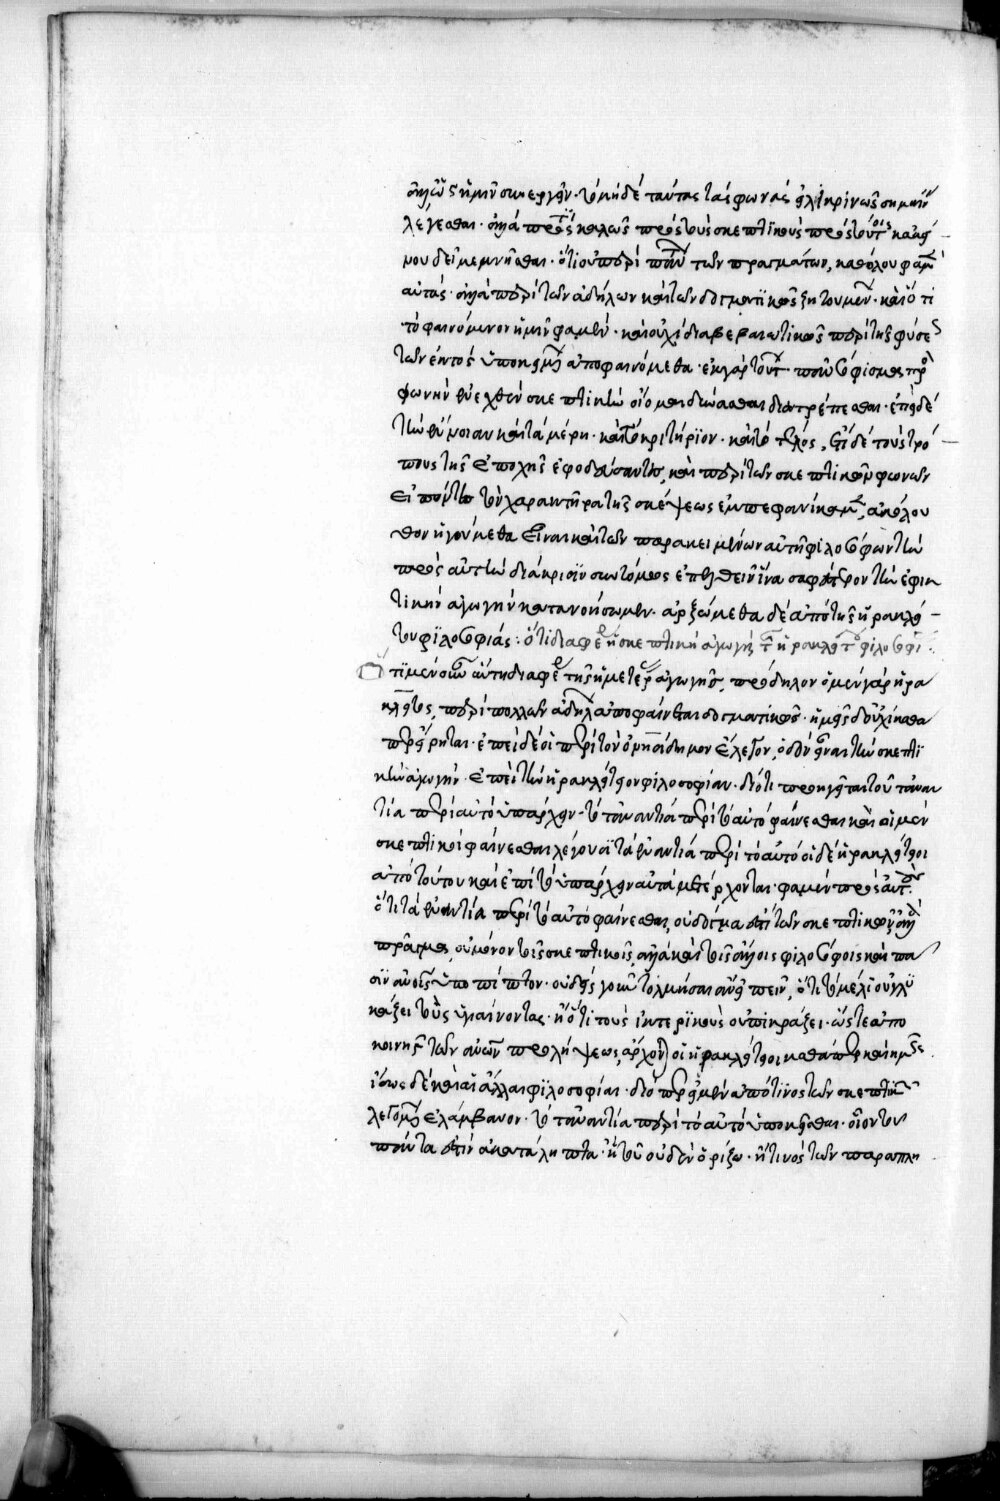 ἀλλως ἡμῖν συνεργεῖν. τὸ μηδὲ ταύτας τὰς φωνὰς εἰλικρινῶς σημαίνειν
λέγεσθαι. ἀλλὰ πρός τι καὶ ὡς πρὸς τοὺς σκεπτικοὺς πρὸς τούτοις κἀκεί
νου δεῖ μεμνῆσθαι. ὅτι οὐ περὶ πάντων τῶν πραγμάτων, καθόλου φαμὲν
αὐτάς. ἀλλὰ περὶ τῶν ἀδήλων καὶ τῶν δογματικῶς ζητουμένων. καὶ ὅτι
τὸ φαινόμενον ἡμῖν φαμὲν. καὶ οὐχὶ διαβεβαιωτικῶς περὶ τῆς φύσεως
τῶν ἐκτὸς ὑποκειμένων ἀποφαινόμεθα. ἐκ γὰρ τούτων πᾶν σόφισμα πρὸς
φωνὴν ἐνεχθὲν σκεπτικὴν οἴομαι δύνασθαι διατρέπεσθαι. ἐπεὶ δὲ
τὴν ἔννοιαν καὶ τὰ μέρη. καὶ τὸ κριτήριον. καὶ τὸ τέλος, ἔτι δὲ τοὺς τρό
πους τῆς ἐποχῆς ἐφοδεύσαντες, καὶ περὶ τῶν σκεπτικῶν φωνῶν
εἰπόντες τὸν χαρακτῆρα τῆς σκέψεως ἐμπεφανίκαμεν, ἀκόλου
θον ἡγούμεθα εἶναι καὶ τῶν παρακειμένων αὐτῇ φιλοσόφων τὴν
πρὸς αὐτὴν διάκρισιν συντόμως ἐπελθεῖν ἵνα σαφέστερον τὴν ἐφεκ
τικὴν ἀγωγὴν κατανοήσωμεν. ἀρξώμεθα δὲ ἀπὸ τῆς ἡρακλεί
του φιλοσοφίας: ὅτι διαφέρει ἡ σκεπτικὴ ἀγωγὴ τῆς ἡρακλείτου φιλοσοφίας:
Ὅτι μὲν οὖν αὕτη διαφέρει τῆς ἡμετέρας ἀγωγῆς, πρόδηλον ὁ μὲν γὰρ ἡρά
κλειτος, περὶ πολλῶν ἀδήλων ἀποφαίνεται δογματικῶς. ἡμεῖς δ' οὐχὶ καθὰ
περ εἴρηται. ἐπεὶ δὲ οἱ περὶ τὸν αἰνησίδημον ἔλεγον, ὁδὸν εἶναι τὴν σκεπτι
κὴν ἀγωγὴν. ἐπὶ τὴν ἡρακλείτειον φιλοσοφίαν. διότι προηγεῖται τοῦ τἀναν
τία περὶ αὐτὸ ὑπάρχειν. τὸ τἀναντία περὶ τὸ αὐτὸ φαίνεσθαι καὶ οἱ μὲν
σκεπτικοὶ φαίνεσθαι λέγουσι τὰ ἐναντία περὶ τὸ αὐτὸ οἱ δὲ ἡρακλείτειοι
ἀπὸ τούτου καὶ ἐπὶ τὸ ὑπάρχειν αὐτὰ μετέρχονται. φαμὲν πρὸς αὐτοὺς
ὅτι τὰ ἐναντία περὶ τὸ αὐτὸ φαίνεσθαι, οὐ δόγμα ἐστὶ τῶν σκεπτικῶν ἀλλὰ
πρᾶγμα, οὐ μόνον τοῖς σκεπτικοῖς, ἀλλὰ καὶ τοῖς ἄλλοις φιλοσόφοις καὶ πᾶ
σιν ἀνοις ὑποπίπτον. οὐδεὶς γοῦν τολμήσαι ἂν εἰπεῖν, ὅτι τὸ μέλι οὐ γλυ
κάζει τοὺς ὑγιαίνοντας. ἢ ὅτι τοὺς ἰκτερικοὺς οὐ πικράζει. ὥστε ἀπὸ
κοινῆς τῶν ἀνων προλήψεως, ἄρχονται οἱ ἡρακλείτειοι καθάπερ καὶ ἡμεῖς
ἴσως δὲ καὶ αἱ ἄλλαι φιλοσοφίαι. διόπερ εἰ μὲν ἀπό τινος τῶν σκεπτικῶς
λεγομένων ἐλάμβανον. τὸ τἀναντία περὶ τὸ αὐτὸ ὑποκεῖσθαι. οἷον τοῦ
πάντα ἐστὶν ἀκατάληπτα. ἢ τοῦ οὐδὲν ὁρίζω. ἤ τινος τῶν παραπλη